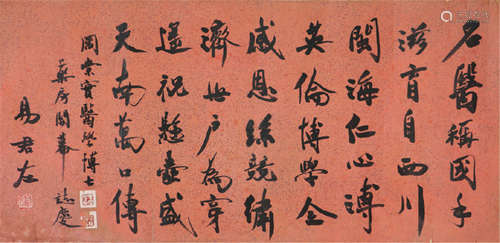 名醫稱國手
滋育自西川
閩海仁心溥
英倫博學全
感恩絲競繡
濟世户為穿
遙祝懸壺盛
天南萬口傳
寶醫學博士
藥房開幕誌慶
易君左